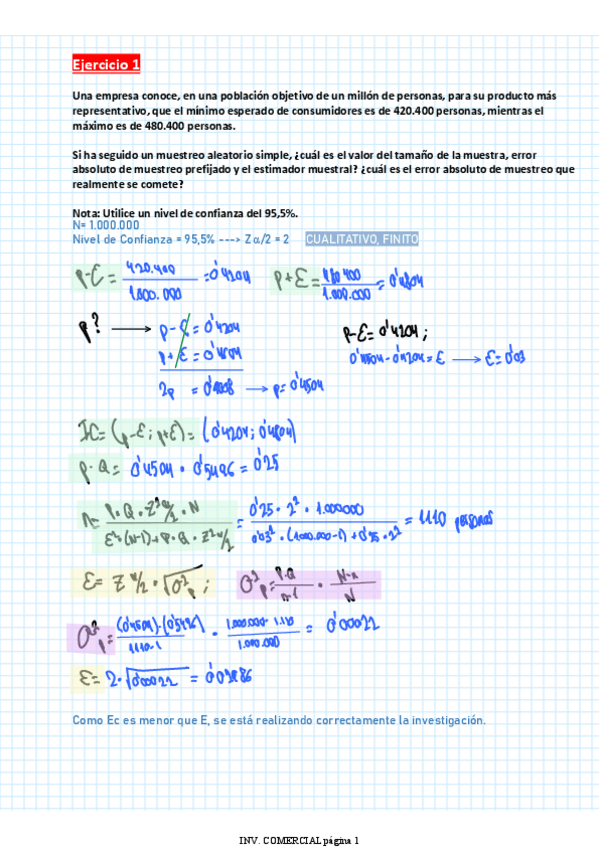 Ejercicio 1
Una empresa conoce, en una población objetivo de un millón de personas, para su producto más
representativo, que el mínimo esperado de consumidores es de 420.400 personas, mientras el
máximo es de 480.400 personas.
Si ha seguido un muestreo aleatorio simple, ¿cuál es el valor del tamaño de la muestra, error
absoluto de muestreo prefijado y el estimador muestral? ¿cuál es el error absoluto de muestreo que
realmente se comete?
Nota: Utilice un nivel de confianza del 95,5%.
N= 1.000.000
Nivel de Confianza = 95,5% ---> Z α/2 = 2 CUALITATIVO, FINITO
p-ε = 420.400 / 1.000.000 = 0'4204 p+ε = 480400 / 1.000.000 = 0'4804
p? → p-ε = 0'4204 p-ε = 0'4204;
p+ε = 0'4804 0'4504-0'4204=ε → ε=0'03
2p = 0'9008 → p=0'4504
IC=(p-ε; p+ε)=(0'4204; 0'4804)
p·Q= 0'4504 · 0'5496 = 0'25
n= P·Q·Z²α/2·N / ε²·(N-1)+P·Q·Z²α/2 = 0'25·2²·1.000000 / 0'03²·(1.000.000-1)+0'25·2² = 1110 personas
ε= Z α/2 · √σ²p ; σ²p= P·Q / n-1 · N-n / N
σ²p= (0'4504)·(0'5496) / 1110-1 · 1.000.000-1.110 / 1.000.000 = 0'00022
ε= 2·√0'00022 = 0'02986
Como Ec es menor que E, se está realizando correctamente la investigación.
INV. COMERCIAL página 1